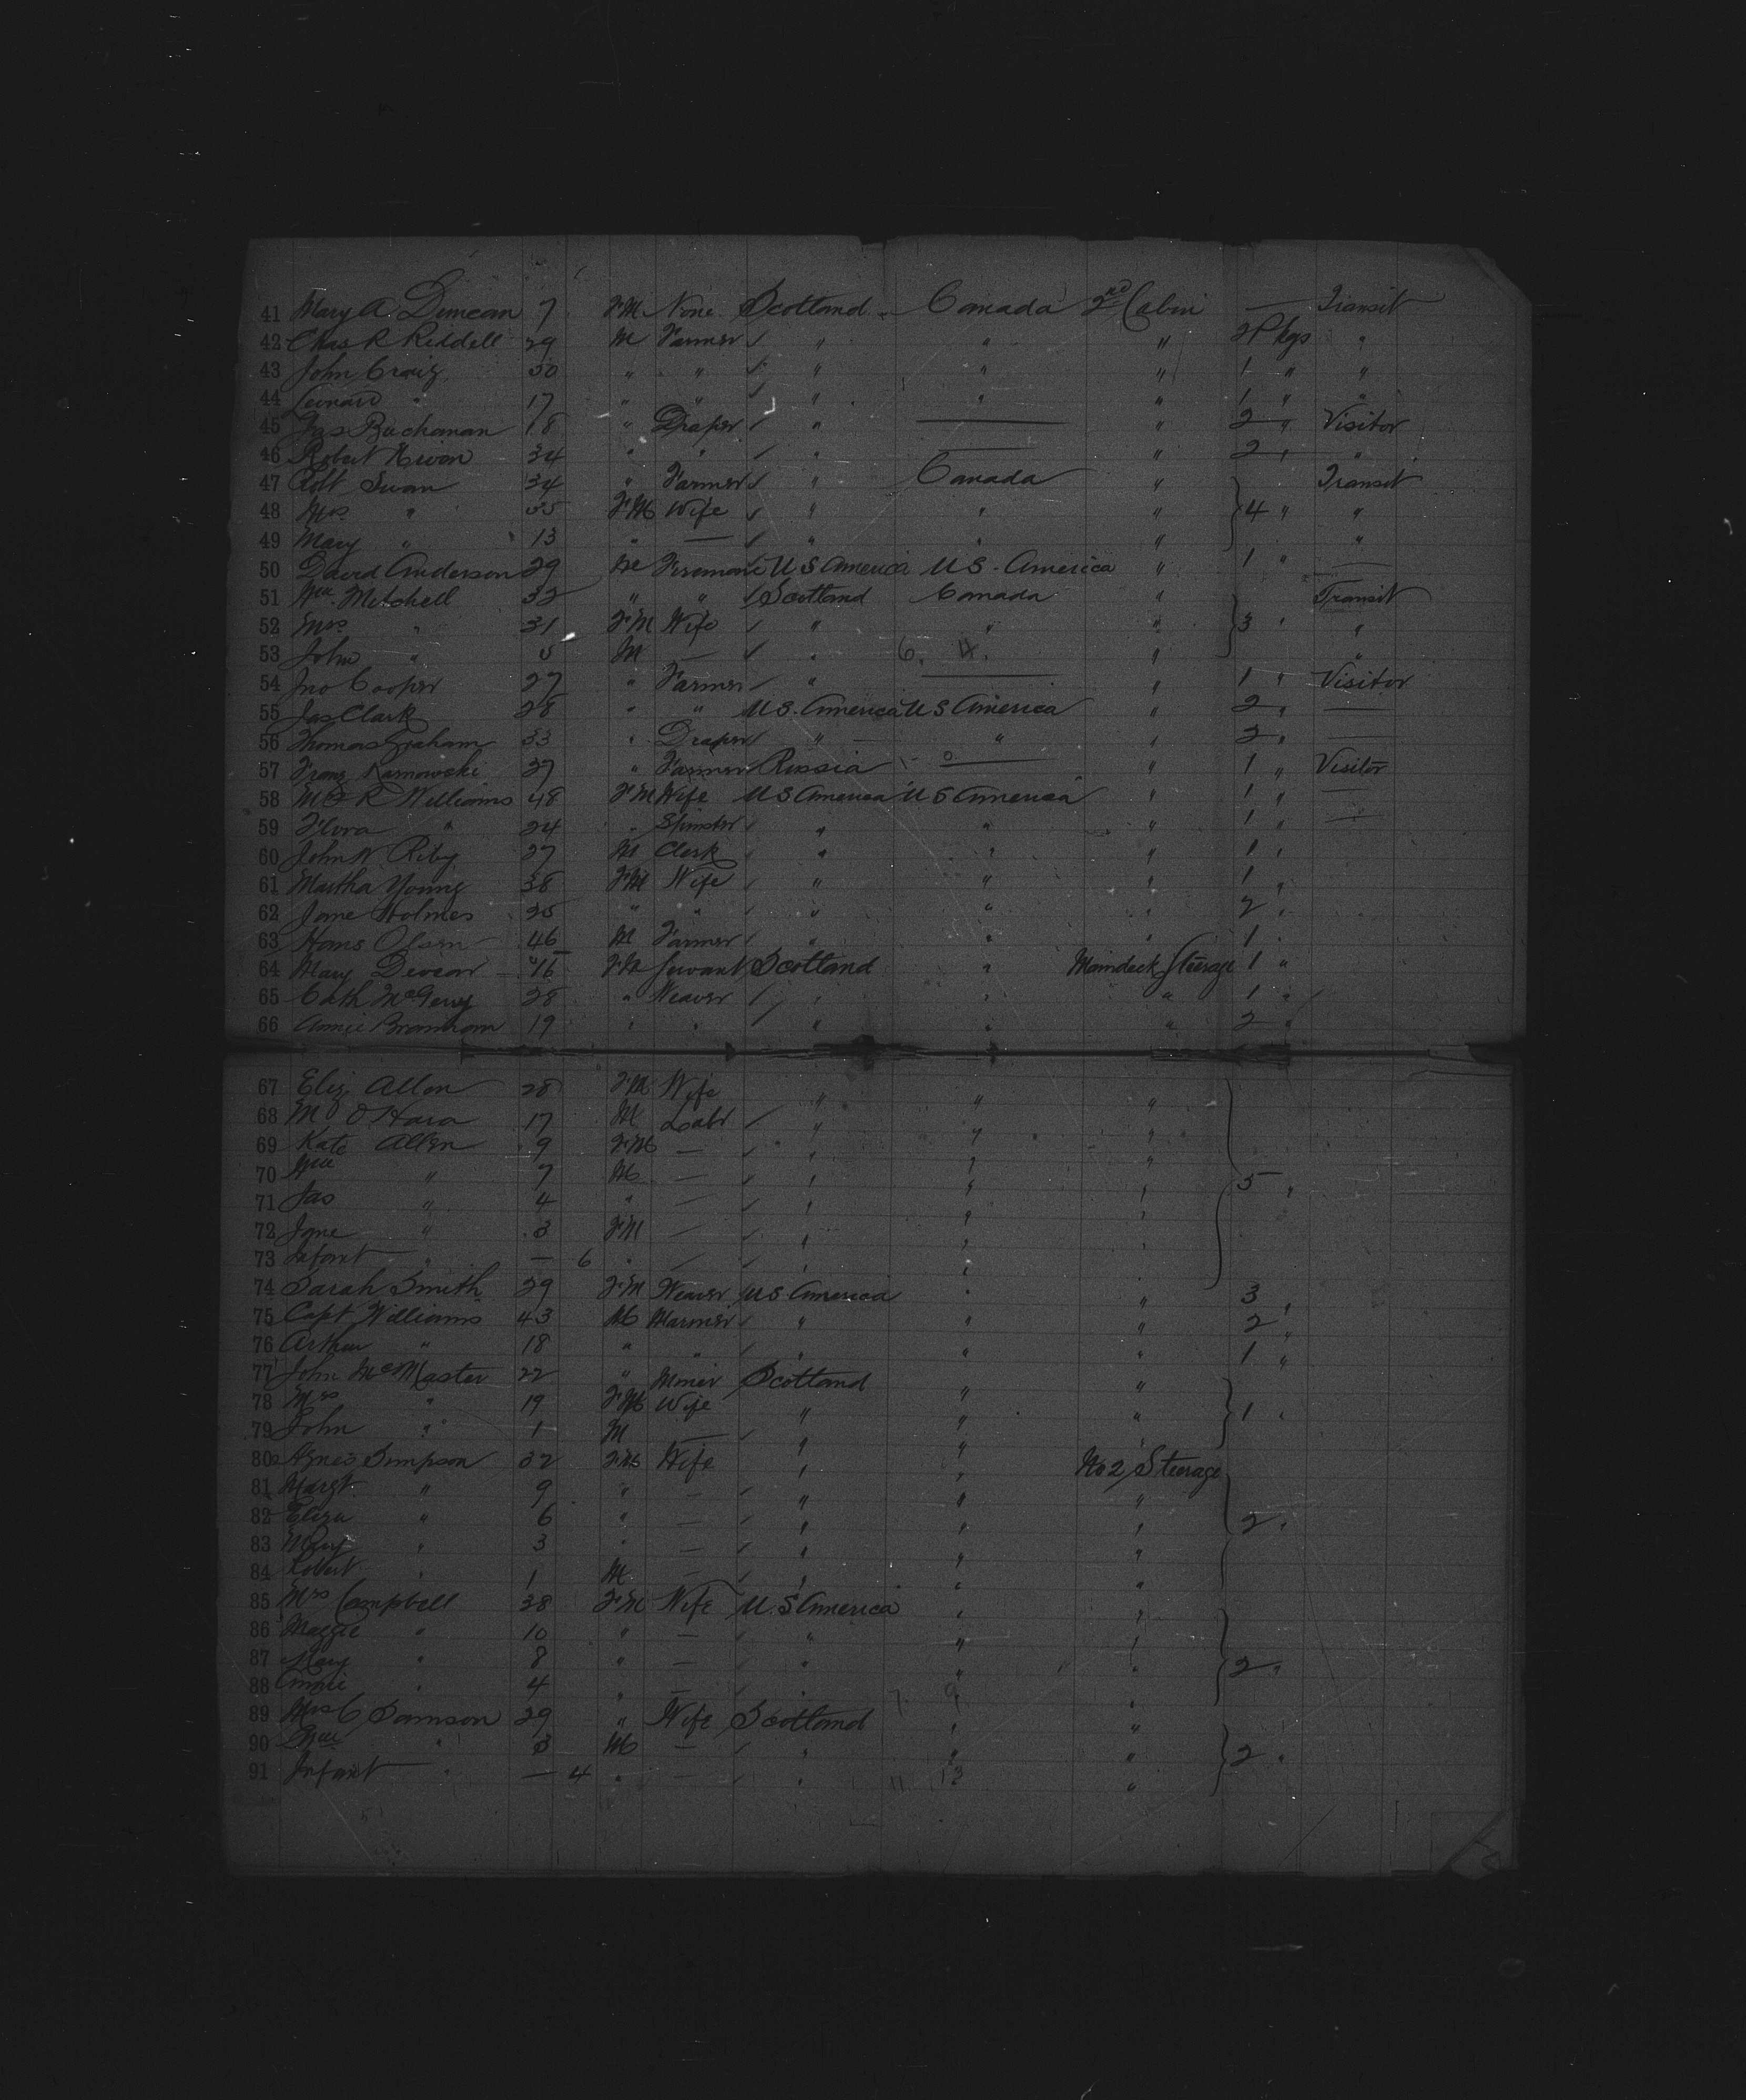 41 Mary A. Duncan 7 FM None Scotland Canada 2nd Cabin — Transit
42 Chas R Riddell 29 M Farmer " " " 2 Pkgs "
43 John Craig 30 " " " " " 1 " "
44 " 17 " " " " " 1 " "
45 Jas Buchanan 18 " Draper " — " 2 " Visitor
46 Robert 34 " " " — " 2 " "
47 Robt Swan 34 " Farmer " Canada " Transit
48 Mrs " 35 FM Wife " " " 4 " "
49 Mary " 13 " — " " " "
50 David Anderson 29 M U S America U S. America " 1 " —
51 Wm Mitchell 32 " " Scotland Canada " Transit
52 Mrs " 31 FM Wife " " " 3 " "
53 John " M — " 6. "
54 Jno Cooper 27 " Farmer " — " 1 " Visitor
55 Jas Clark 28 " " U S. America U S America " 2 " —
56 Thomas Graham 33 " Draper " " " 2 " —
57 Franz 27 " Farmer Russia — " 1 " Visitor
58 R Williams 48 FM Wife U S America U S America " 1 " —
59 Flora " 24 " Spinster " " " 1 " —
60 John W 27 M Clerk " " " 1 "
61 Martha Young 38 FM Wife " " " 1 "
62 Jane Holmes 25 " " " " " 2 "
63 Hans Olsen 46 M Farmer " " " 1 "
64 Mary 16 FM Servant Scotland " Maindeck Steerage 1 "
65 Cath 28 " Weaver " " " 1 "
66 Annie 19 " " " " " 2 "
67 Eliz Allen 28 FM Wife " " "
68 M O'Hara 17 M Labr " " "
69 Kate Allen 9 FM — " " "
70 Wm " 7 M — " " " 5 "
71 Jas " 4 " — " " "
72 Jane " 3 FM — " " "
73 Infant " — 6 " — " " "
74 Sarah Smith 29 FM Weaver U S America " " 3 "
75 Capt Williams 43 M Mariner " " " 2 "
76 Arthur " 18 " " " " " 1 "
77 John McMaster 22 " Miner Scotland " "
78 Mrs " 19 FM Wife " " " 1 "
79 John " 1 M — " " "
80 Agnes Simpson 32 FM Wife " " No 2 Steerage
81 Margt " 9 " — " " "
82 Eliza " 6 " — " " " 2 "
83 Mary " 3 " — " " "
84 Robert " 1 M — " " "
85 Mrs Campbell 38 FM Wife U. S America " "
86 Maggie " 10 " — " " "
87 Mary " 8 " — " " " 2 "
88 Annie " 4 " — " "
89 Mrs C Samson 29 " Wife Scotland " "
90 Wm " 3 M — " " " 2 "
91 Infant " — 4 " — " "